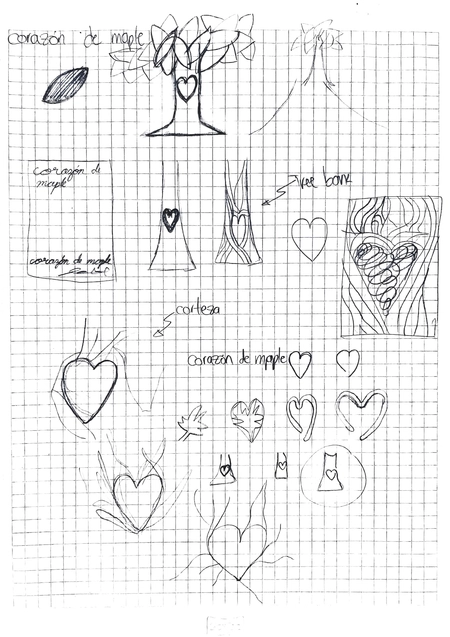 corazón de maple
corazón de
maple
corazón de maple
Tree bark
corteza
corazón de maple